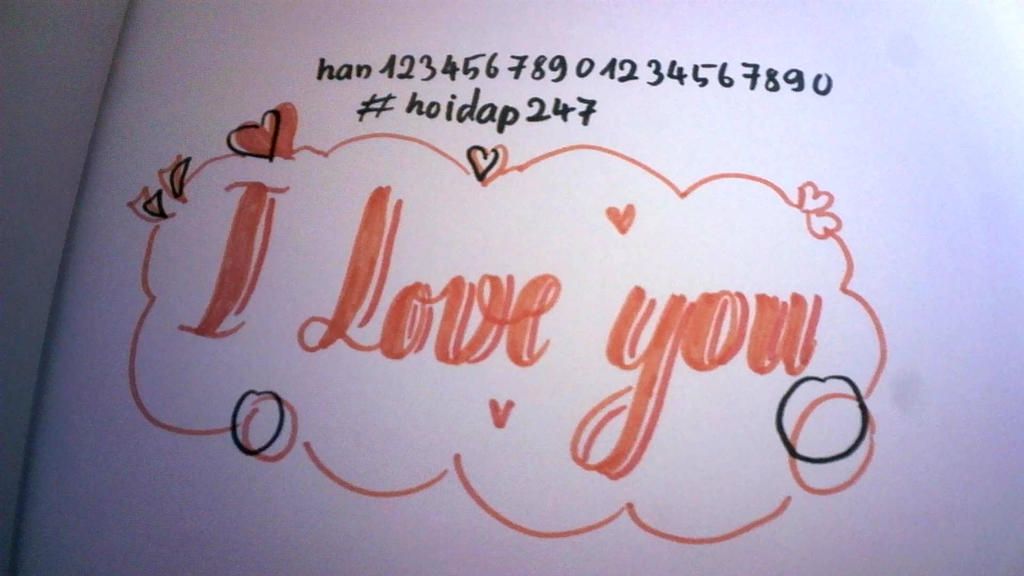 han12345678901234567890
# hoidap247
I Love you